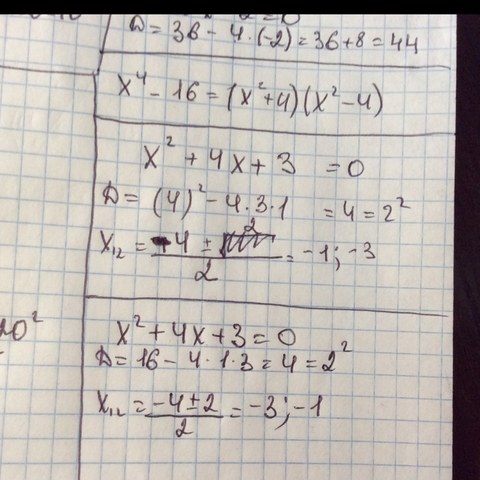 = 0
D = 36 - 4 · (-2) = 36 + 8 = 44
x⁴ - 16 = (x² + 4)(x² - 4)
x² + 4x + 3 = 0
D = (4)² - 4 · 3 · 1 = 4 = 2²
x₁₂ = (-4 ± 2)/2 = -1; -3
x² + 4x + 3 = 0
D = 16 - 4 · 1 · 3 = 4 = 2²
x₁₂ = (-4 ± 2)/2 = -3; -1